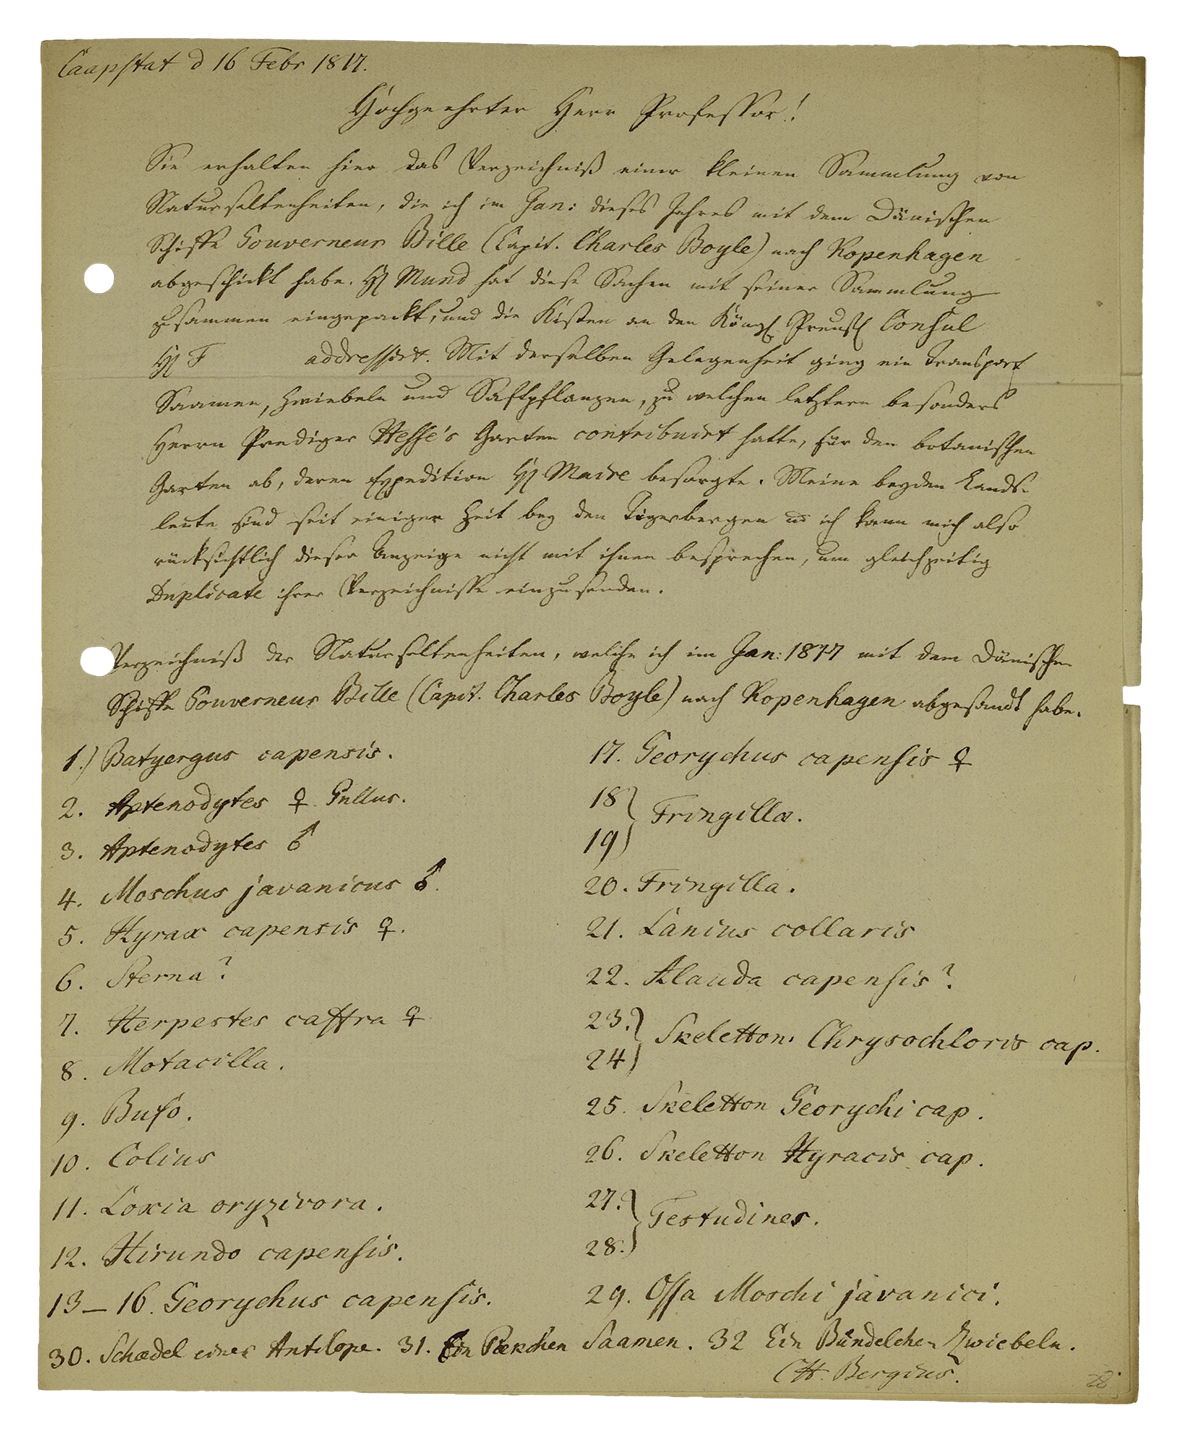 Caapstat d 16 Febr 1817.
Hochgeehrter Herr Professor!
Sie erhalten hier das Verzeichniß einer kleinen Sammlung von
Naturseltenheiten, die ich im Jan: dieses Jahres mit dem Dänischen
Schiffe Gouverneur Bille (Capit. Charles Boyle) nach Kopenhagen
abgeschickt habe. H Mund hat diese Sachen mit seiner Sammlung
zusammen eingepackt, und die Kisten an den Königl Preuß Consul
H F addressirt. Mit derselben Gelegenheit ging ein Transport
Saamen, Zwiebeln und Saftpflanzen, zu welchen letztern besonders
Herrn Prediger Hesse's Garten contribuirt hatte, für den botanischen
Garten ab, deren Expedition H Maire besorgte. Meine beyden Lands-
leute sind seit einiger Zeit bey den Tigerbergen u ich kann mich also
rücksichtlich dieser Anzeige nicht mit ihnen besprechen, um gleichzeitig
Duplicate ihrer Verzeichnisse einzusenden.
Verzeichniß der Naturseltenheiten, welche ich im Jan: 1817 mit dem Dänischen
Schiffe Gouverneur Bille (Capit. Charles Boyle) nach Kopenhagen abgesandt habe.
1.) Batyergus capensis.
2. Aptenodytes ♀ Pullus.
3. Aptenodytes ♂
4. Moschus javanicus ♂.
5. Hyrax capensis ♀.
6. Sterna?
7. Herpestes caffra ♀
8. Motacilla.
9. Bufo.
10. Colius
11. Loxia oryzivora.
12. Hirundo capensis.
13–16. Georychus capensis.
17. Georychus capensis ♀
18
19 } Fringillæ.
20. Fringilla.
21. Lanius collaris
22. Alauda capensis?
23.
24 } Skeletton. Chrysochloris cap.
25. Skeletton Georychi cap.
26. Skeletton Hyracis cap.
27.
28. } Testudines.
29. Ossa Moschi javanici.
30. Schædel einer Antilope. 31. Ein Päckchen Saamen. 32 Ein Bündelchen Zwiebeln.
CH. Bergius.
28